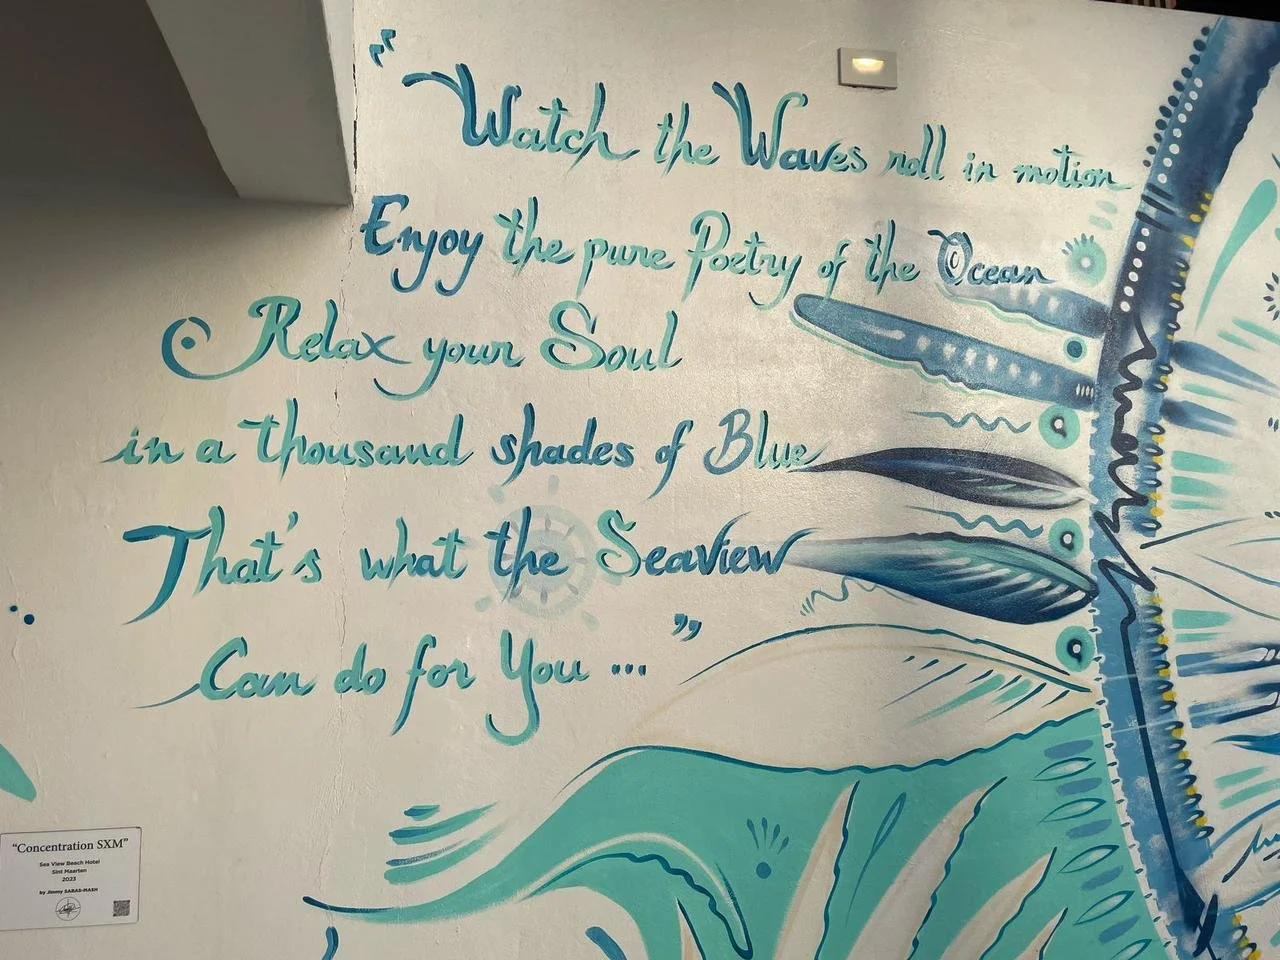 "Watch the Waves roll in motion
Enjoy the pure Poetry of the Ocean
Relax your Soul
in a thousand shades of Blue
That's what the Seaview
Can do for You ..."
"Concentration SXM"
Sea View Beach Hotel
Sint Maarten
2023
by Jimmy SABAS-MASH